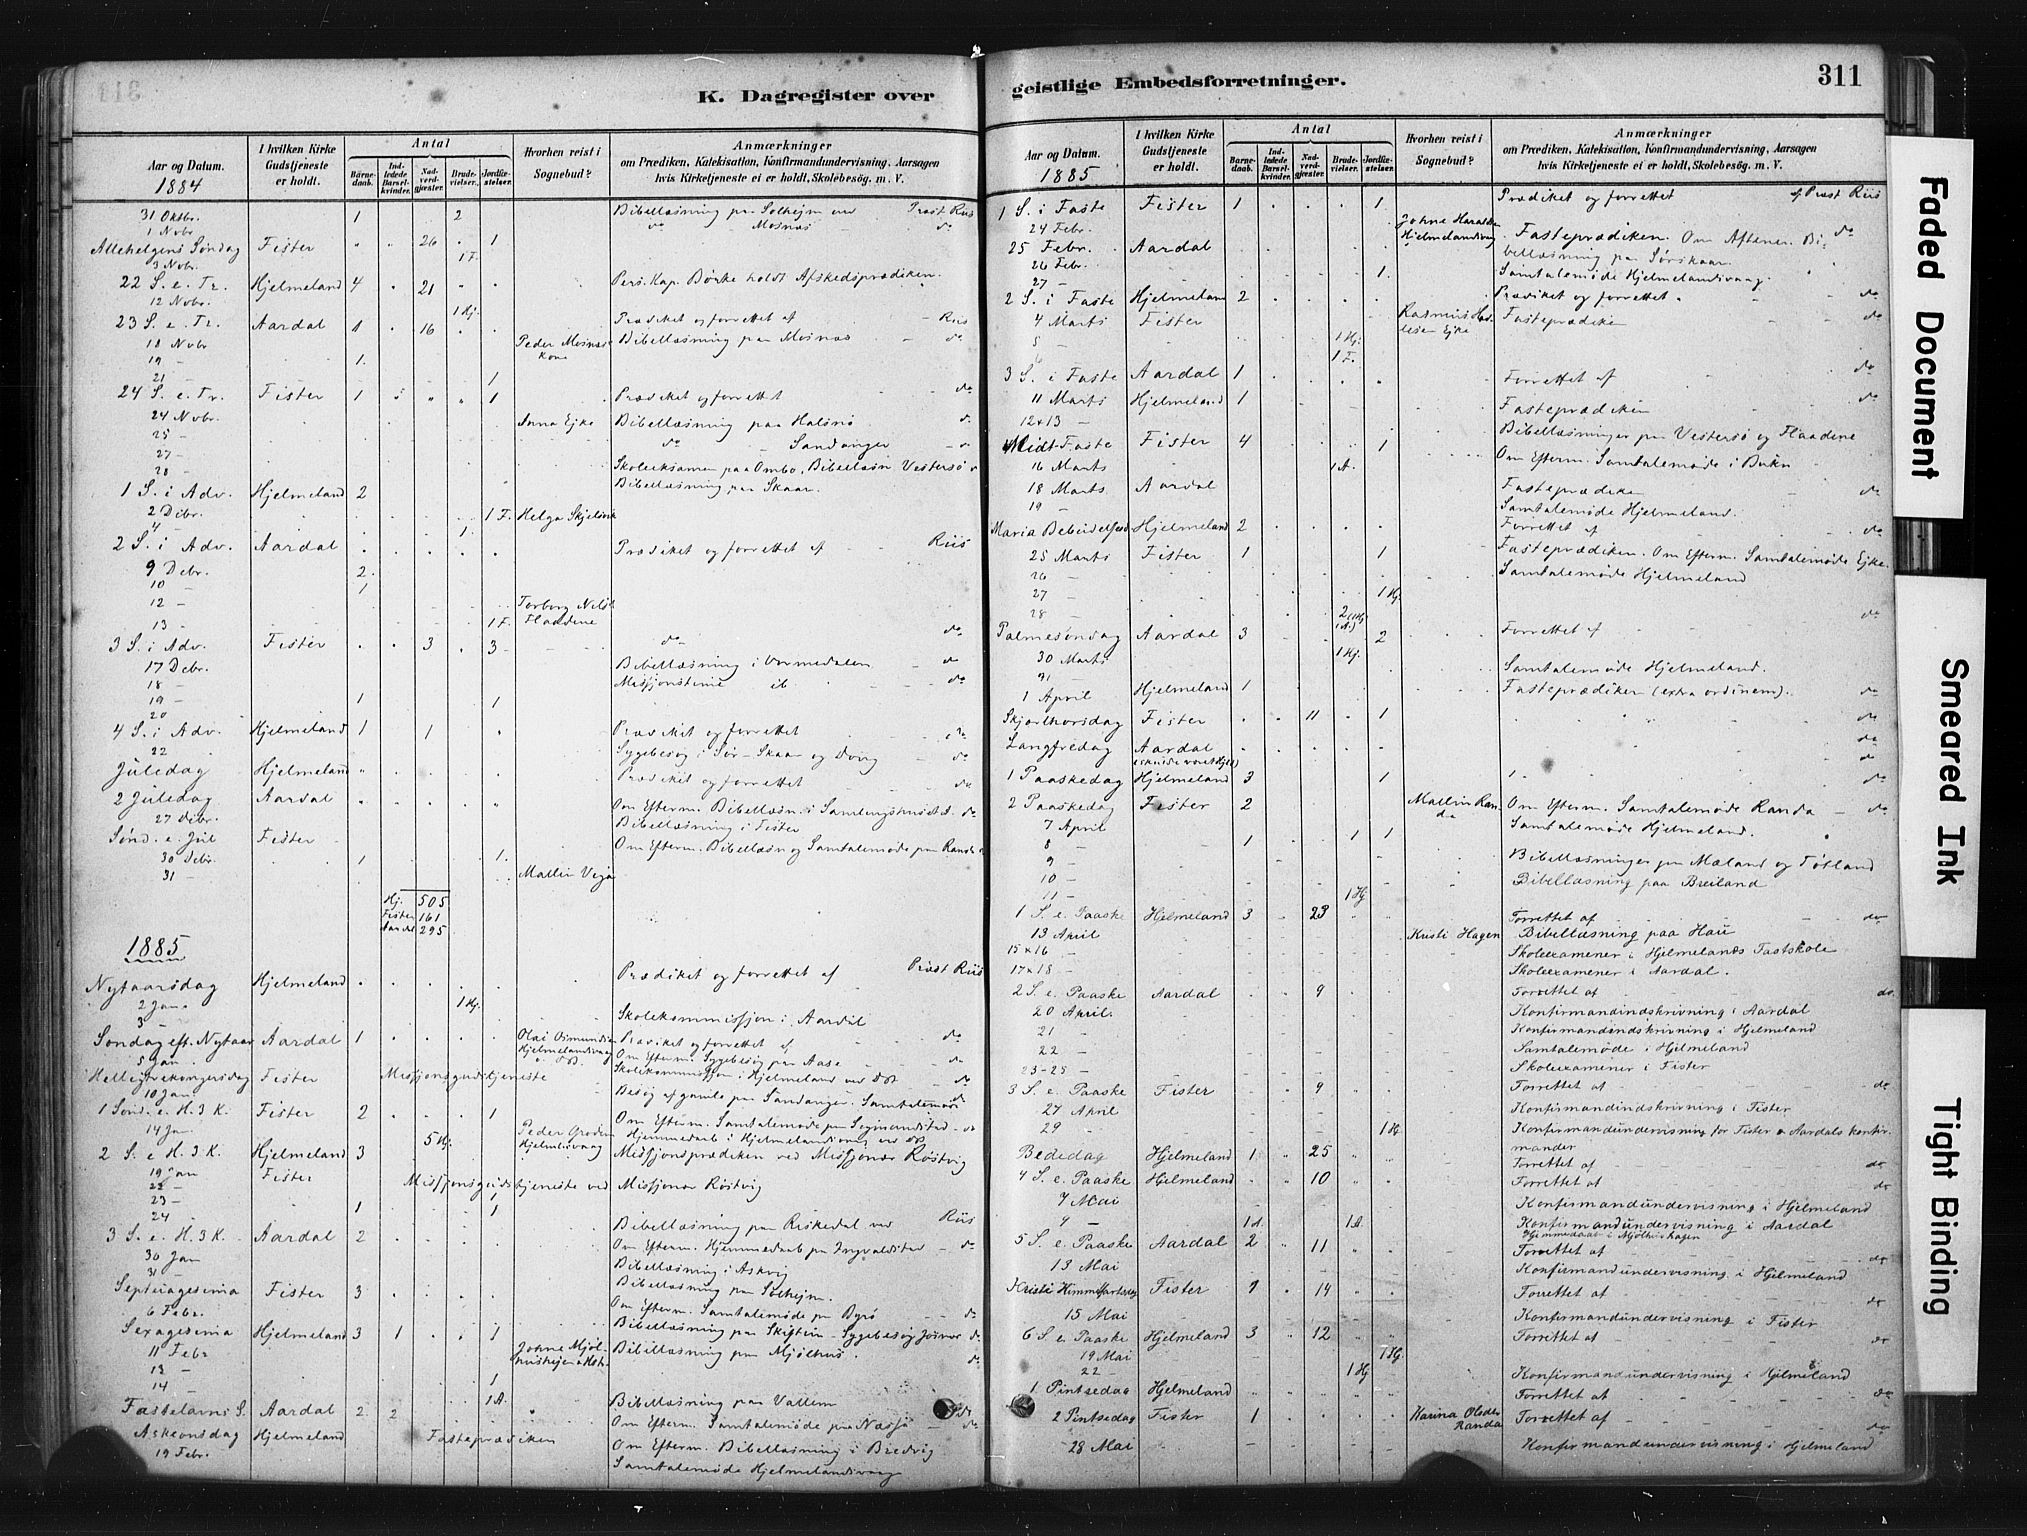 K. Dagregister over
Antal
Aar og Datum.
1884
I hvilken Kirke Gudstjeneste er holdt.
Barnedaab.
Indledede Barselkvinder.
Nadverdgjester.
Brudevielser.
Jordfæstelser.
Hvorhen reist i Sognebud?
Anmærkninger
om Prædiken, Katekisation, Konfirmandundervisning, Aarsagen
hvis Kirketjeneste ei er holdt, Skolebesøg. m. V.
31 Oktbr. 1 2 Bibellæsning paa Solheim ved Prost Riis
1 Nobr do Mosnæs do
Allehelgens Søndag Fister " " 26 . 1
3 Nobr. 1 F.
22 S. e. Tr. Hjelmeland 4 . 21 . . Pers. Kap. Børke holdt Afskedsprædiken.
12 Nobr. 1 Hj.
23 S. e. Tr. Aardal 1 . 16 . . Prædiket og forrettet af Riis
18 Nobr Peder Mosnæs kone Bibellæsning paa Mosnæs do
19 - 1.
21 - 1
24 S. e. Tr. Fister 1 1 Prædiket og forrettet do
24 Nobr. Anna Ejke Bibellæsning paa Halsnø
25 - do Sandanger
27 -
28 - Skoleeksamen paa Ombo. Bibellæsn Vestersø
1 S. i Adv. Hjelmeland 2 Bibellæsning paa Skaar.
2 Dcbr. 1 F. Helga
4 - 1.
2 S. i Adv. Aardal Prædiket og forrettet af Riis
9 Debr. 2.
10 - 1
12 - Torborg
13 - 1 F.
3 S. i Adv. Fister . . 3 . 3 do do
17 Debr. Bibellæsning i Vormedalen do
18 - Missjonstime ib. do
19 - 1 1
20
4 S. i Adv. Hjelmeland 1 1 Prædiket og forrettet do
22 Sygebesøg i Sør-Skaar og do
Juledag Hjelmeland Prædiket og forrettet do
2 Juledag Aardal Om Efterm. Bibellæsn. i Samlingshuset do
27 Debr. Bibellæsning i Fister
Sønd. e. Jul Fister Om Efterm. Bibellæsn og Samtalemøde paa Randa
30 Debr. 1 1.
31 - Mallin
Hj. 505
Fister 161
Aardal 295
1885
Nytaarsdag Hjelmeland Prædiket og forrettet af Prost Riis
2 Jan. 1 Hj.
3 - Skolekommissjon i Aardal
Søndag eft. Nytaar Aardal 1 Prædiket og forrettet af do
5 Jan Hjelmelandsvaag Om Efterm. Sygebesøg paa Aase do
Helligtrekongersdag Fister Missjonsgudstjeneste Skolekommissjon i Hjelmeland do
10 Jan Besøg af gamle paa Sandanger. Samtalemøde
1 Sønd. e. H. 3 K. Fister 2 1 Om Efterm. Samtalemøde paa do
14 Jan. 5 Hj. Peder Hjelmelandsvaag
2 S. e. H. 3 K. Hjelmeland 3 Missjonsprædiken ved Missjonær Røstvig
19 Jan Fister Missjonsgudstjeneste ved Missjonær Røstvig
22 -
23 -
24 - 1 1
3 S. e. H. 3 K. Aardal 2 Bibellæsning paa Riskedal ved Riis
30 Jan Om Efterm. Hjemmedaab paa Ingvaldstad do
31 - Bibellæsning i Askvig
Septuagesima Fister 3 Bibellæsning paa Solheim.
6 Febr. Om Efterm. Samtalemøde paa Byrø do
Sexagesima Hjelmeland 3 1 1 Bibellæsning paa Sygebesøg do
11 Febr Johne Bibellæsning paa Mjølhus. do
13 -
14 - 1
1 A. Bibellæsning paa Vallem
Fastelavns S. Aardal 2 2 Om Efterm. Samtalemøde paa Næsjø do
Askeonsdag Hjelmeland Fasteprædiken Om Efterm. Bibellæsning i Bredvig
19 Febr. Samtalemøde Hjelmelandsvaag
geistlige Embedsforretninger.
311
Antal
Aar og Datum.
1885
I hvilken Kirke Gudstjeneste er holdt.
Barnedaab.
Indledede Barselkvinder.
Nadverdgjester.
Brudevielser.
Jordfæstelser.
Hvorhen reist i Sognebud?
Anmærkninger
om Prædiken, Katekisation, Konfirmandundervisning, Aarsagen
hvis Kirketjeneste ei er holdt, Skolebesøg. m. V.
1 S. i Faste Fister 1 . . . 1 Prædiket og forrettet af Prost Riis
24 Febr. Johne Hjelmelandsvaag
25 Febr. Aardal Fasteprædiken. Om Aftenen Bi- do
26 Febr. bellæsning paa Sørskaar.
27 - 1. Samtalemøde Hjelmelandsvaag
2 S. i Faste Hjelmeland 2 Prædiket og forrettet do
4 Marts Fister Rasmus Ejke Fasteprædiken do
5 - 1 Hj.
6 1 F.
3 S. i Faste Aardal 1 Forrettet af do
11 Marts Hjelmeland 1 Fasteprædiken do
12 & 13 - Bibellæsninger paa Vestersø og Flaadene
Midt-Faste Fister 4 1 Om Efterm. Samtalemøde i
16 Marts 1 A.
18 Marts. Aardal Fasteprædiken do
19 - Samtalemøde Hjelmeland.
Maria Bebudelsesd Hjelmeland 2 Forrettet af do
25 Marts Fister 1 1 Fasteprædiken. Om Efterm. Samtalemøde Ejke
26 - Samtalemøde Hjelmeland
27 - 1 Hj
28 - 2 (1 Hj 1 A.) do
Palmesøndag Aardal 3 2 Forrettet af
30 Marts 1 Hj.
31 Samtalemøde Hjelmeland.
1 April Hjelmeland 1 Fasteprædiken (extra ordinem). do
Skjærthorsdag Fister . . 11 . 1 do
Langfredag Aardal do
1 Paaskedag Hjelmeland 3 1 do
2 Paaskedag Fister 2 Mallin Randa Om Efterm. Samtalemøde Randa do
7 April Samtalemøde Hjelmeland.
8 - 1 1 1
9 - Bibellæsninger paa Mæland og Tøtland
10 - Bibellæsning paa Breiland
11 - 1 Hj
1 S. e. Paaske Hjelmeland 3 23 Forrettet af do
13 April Kristi Hagen Bibellæsning paa Hau
15 & 16 - Skoleexamener i Hjelmelands Fastskole
17 & 18 - Skoleexamener i Aardal.
2 S. e. Paaske Aardal 9 Forrettet af do.
20 April. Konfirmandindskrivning i Aardal
21 - Konfirmandindskrivning i Hjelmeland
22 - Samtalemøde i Hjelmeland
23-25 - Skoleexamener i Fister
3 S. e. Paaske Fister 9 Forrettet af do
27 April Konfirmandindskrivning i Fister
29 - 1 Hj Konfirmandundervisning for Fister & Aardals konfir-
mander
Bededag Hjelmeland 1 25 Forrettet af do
4 S. e. Paaske Hjelmeland 10 Forrettet af do
7 Mai Konfirmandundervisning i Hjelmeland
9 - 1 A. 1 A. Konfirmandundervisning i Aardal
Hjemmedaab i Mjølhushagen
5 S. e. Paaske Aardal 2 11 Forrettet af do
13 Mai Konfirmandundervisning i Hjelmeland
Kristi Himmelfartsdag Fister 1 14 Forrettet af do
15 Mai Konfirmandundervisning i Fister
6 S. e. Paaske Hjelmeland 3 12 Forrettet af do
19 Mai 1 Hj.
22 - 1 Hj Konfirmandundervisning i Hjelmeland
1. Pintsedag Hjelmeland Forrettet af do
2 Pintsedag Fister 1 Karina Olsdr Randa Forrettet af do
28 Mai Konfirmandundervisning i Hjelmeland
Faded Document
Smeared Ink
Tight Binding